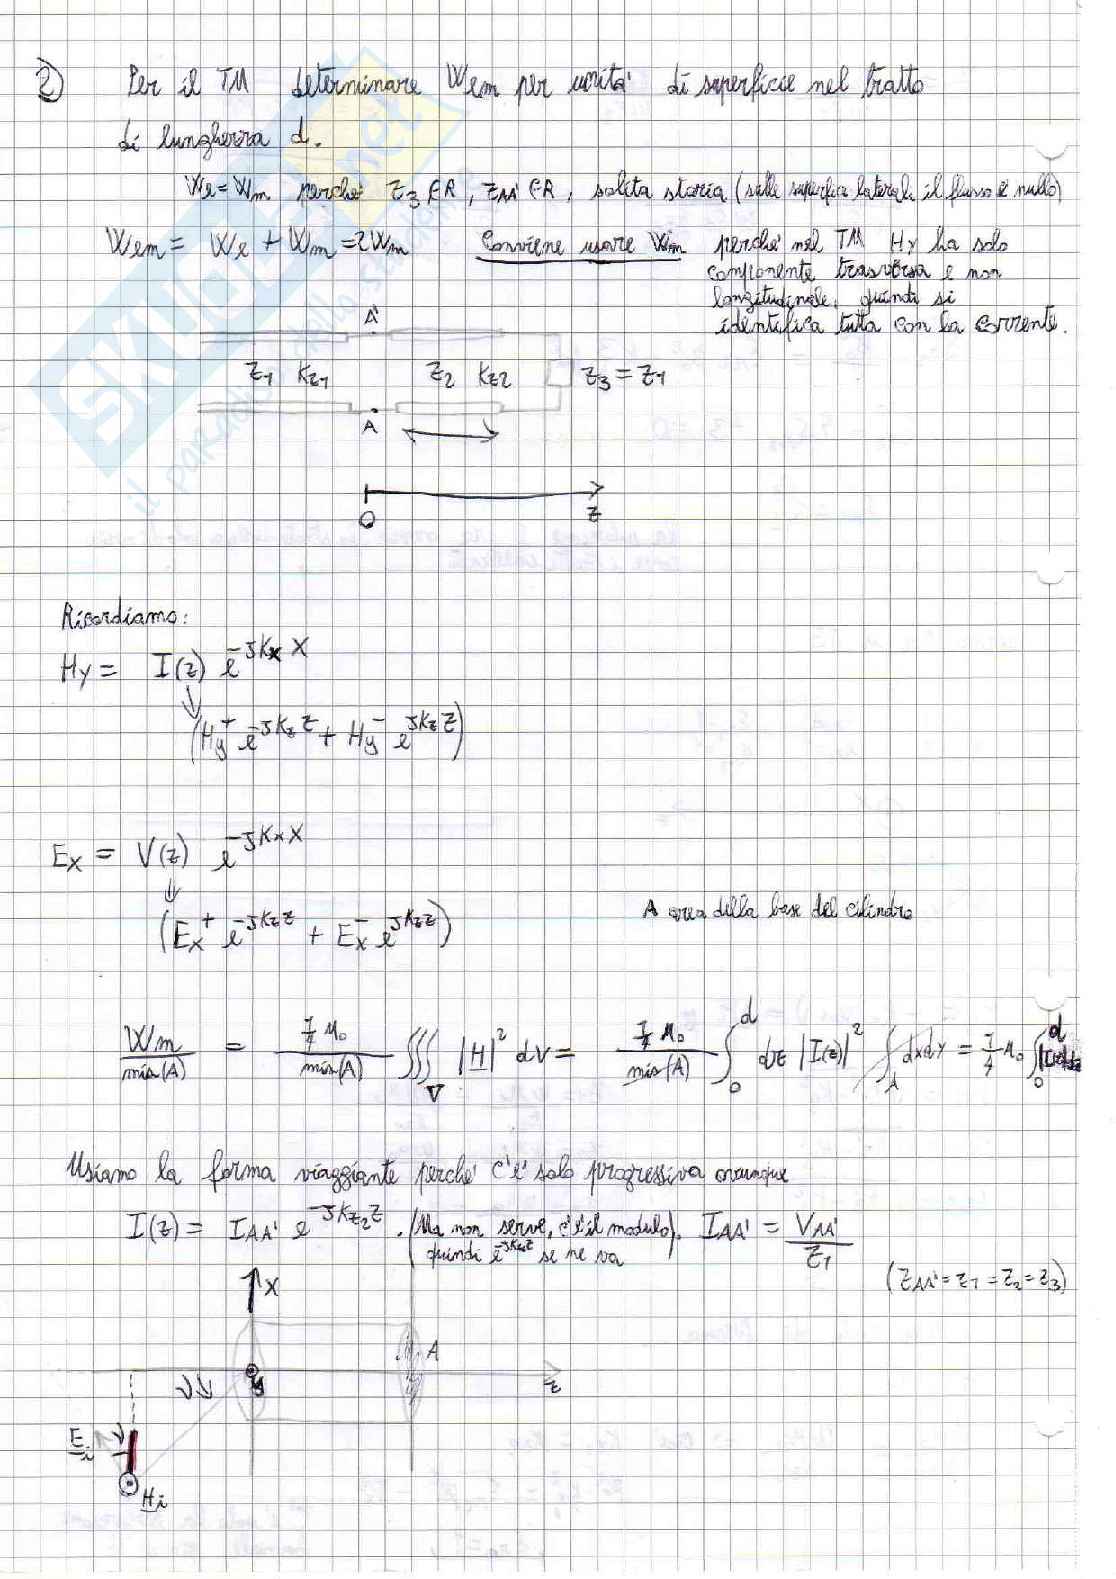 2) Per il TM determinare Wem per unità di superficie nel tratto
di lunghezza d.
We = Wm perché Z3 ∈ R, ZAA' ∈ R, solita storia (sulle superfici laterali il flusso è nullo)
Wem = We + Wm = 2Wm Conviene usare Wm perché nel TM Hy ha solo
componente trasversa e non
longitudinale, quindi si
identifica tutta con la corrente.
A'
Z1 Kz1 Z2 Kz2 Z3 = Z1
A
O z
Ricordiamo:
Hy = I(z) e^-jKx X
(Hy^+ e^-jKz z + Hy^- e^jKz z)
Ex = V(z) e^-jKx X
(Ex^+ e^-jKz z + Ex^- e^jKz z)
A area della base del cilindro
Wm/mis(A) = 1/4 μ0/mis(A) ∭V |H|^2 dV = 1/4 μ0/mis(A) ∫0^d dz |I(z)|^2 ∫A dxdy = 1/4 μ0 ∫0^d
Usiamo la forma viaggiante perché c'è solo progressiva ovunque
I(z) = IAA' e^-jKz2 z . (Ma non serve, c'è il modulo). IAA' = VAA'/Z1
quindi e^-jKz z se ne va
(ZAA' = Z1 = Z2 = Z3)
X
A
y z
Ei
Hi
SKUOLA.net
il paradiso dello studente